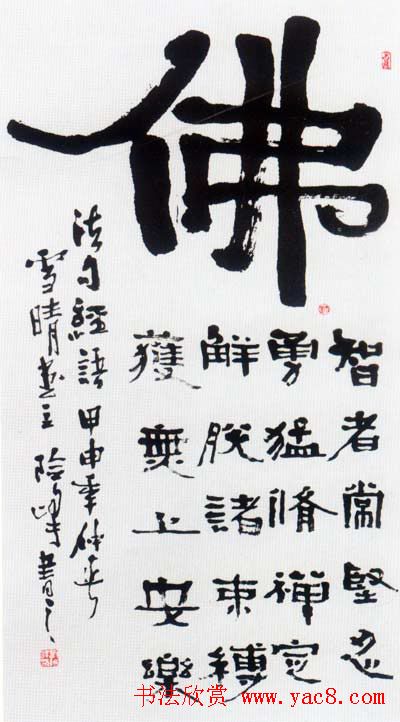 佛
智者常堅忍
勇猛脩禪定
解脫諸束縛
獲無上安樂
法句經語甲申年仲
雪晴主險峰書之
书法欣赏 www.yac8.com